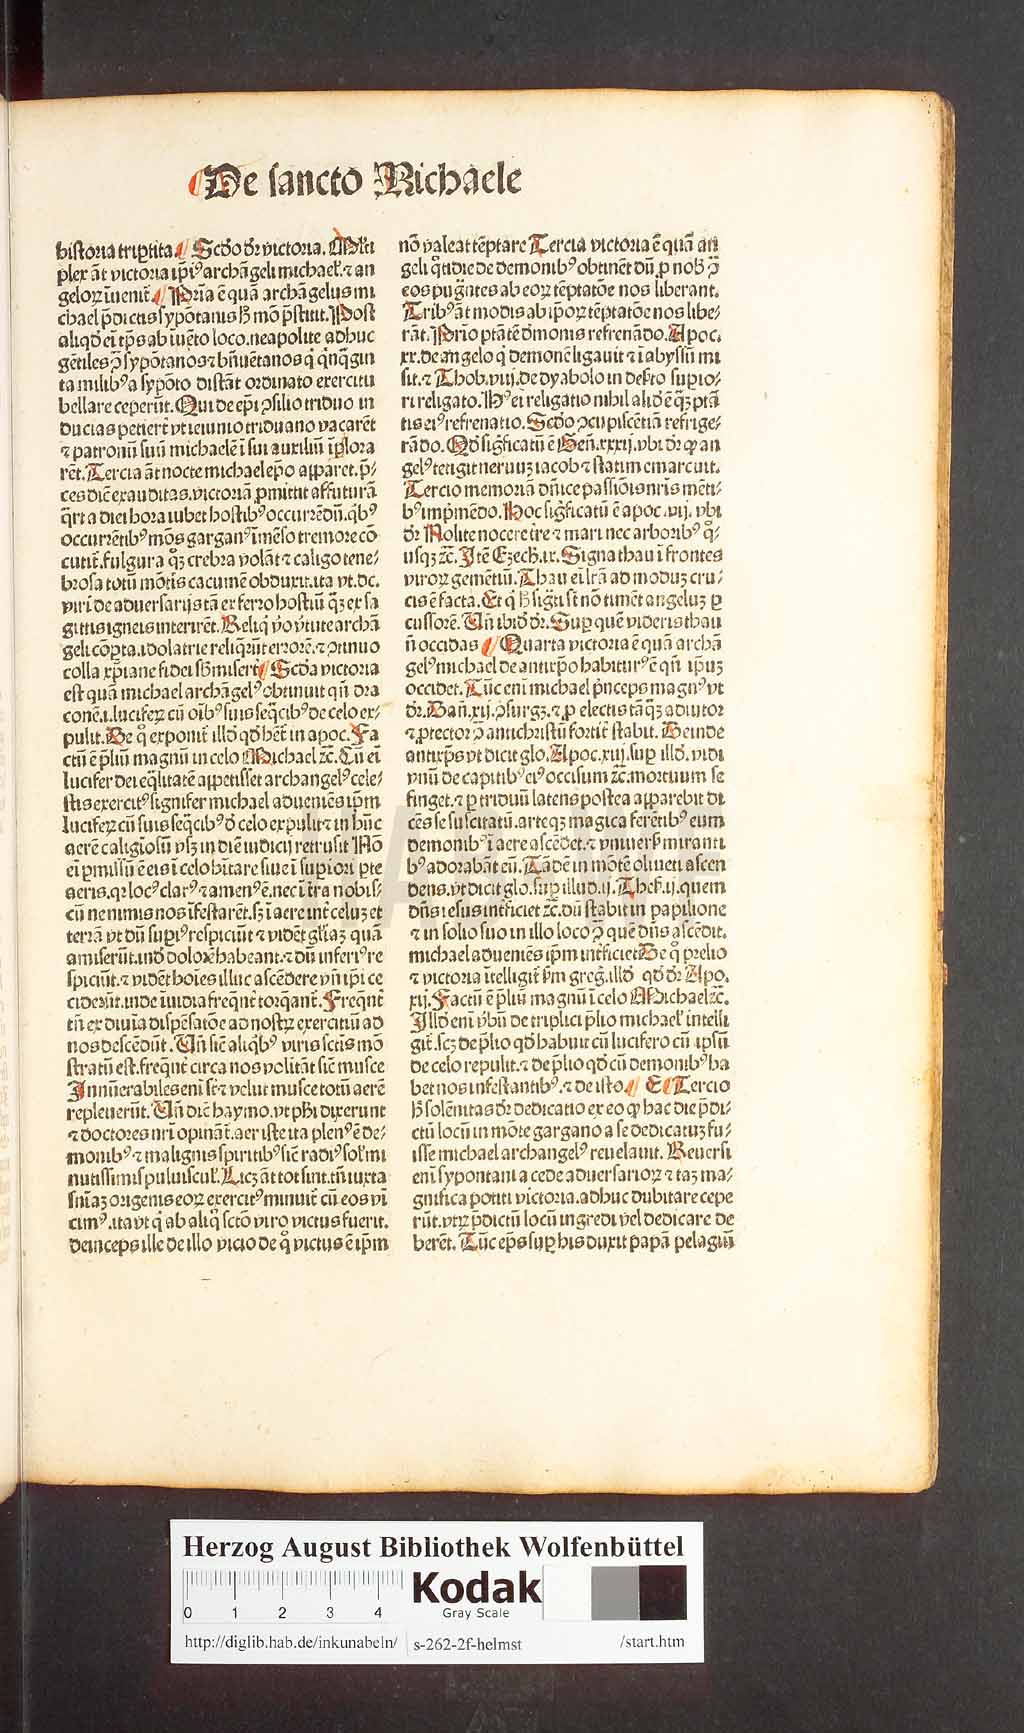 De sancto Michaele
historia triꝑtita. Scd̄o dr̄ victoria. Ml̕ti
plex āt victoria ip̄iꝰ archāgeli michael̕. ⁊ an
geloꝝ īuenit̄. Pn̄a ē quā archāgelus mi
chael p̄dictis sypōtanis h̄ mō p̄stitit. Post
aliqd̄ ei̅ tp̄s ab iuēto loco. neapolite adhuc
gētiles ꝯ̄ sypōtanos ⁊ bn̄uētanos q̄ qn̄q̄gin
ta milibꝰ a sypōto distāt ordinato exercitu
bellare ceperūt. Qui de ep̄i ꝯsilio triduo in
ducias petierēt vt ieiunio triduano vacarēt
⁊ patronū suū michaelē ī sui auxiliū īplora
rēt. Tercia āt nocte michael ep̄o apparet. p̄-
ces dic̄ exauditas. victoriā ꝓmittit affuturā
q̄rta diei hora iubet hostibꝰ occurrēdū. q̄bꝰ
occurrētibꝰ mōs garganꝰ īmēso tremore cō
cutit̄. fulgura qͦꝫ crebra volāt ⁊ caligo tene-
brosa totū mōtis cacumē obduxit. ita vt. dc.
viri de aduersarijs tā ex ferro hostiū q̄ꝫ ex sa
gittis igneis interirēt. Reliq̄ vo v̄tute archā
geli cōperta. idolatrie reliq̄rūt errorē. ⁊ ꝯtinuo
colla xp̄iane fidei sb̄miserūt Scd̄a victoria
est quā michael archāgelꝰ obtinuit qn̄ dra
conē. i. luciferꝝ cū oībꝰ suis seq̄cibꝰ de celo ex-
pulit. De qͦ exponit̄ illd̄ qd̄ hēt̄ in apoc. Fa
ctū ē p̄liū magnū in celo Michael ⁊c̄. Cū ei̅
lucifer dei eq̄litatē appetisset archangelꝰ cele-
stis exercitꝰ signifer michael adueniēs ip̄m
luciferꝝ cū suis seq̄cibꝰ d̄ celo expulit ⁊ in hūc
aerē caliginosū vsꝫ in diē iudicij retrusit Nō
ei̅ ꝑmissū ē eis ī celo hītare siue ī supiori pte
aeris. qꝛ locꝰ clarꝰ ⁊ amenꝰ ē. nec ī tr̄a nobis-
cū ne nimis nos īfestarēt. sꝫ ī aere int̄ celuꝫ et
terrā vt dū supiꝰ respiciūt ⁊ vidēt gl̄iaꝫ quā
amiserūt. ind̄ dolorē habeant. ⁊ dū inferiꝰ re
spiciūt. ⁊ vidēt hoīes illuc ascēdere vn̄ ip̄i ce
ciderūt. inde īuidia freq̄nt̄ torq̄ant̄. Freq̄nt̄
tn̄ ex diuīa dispēsatōe ad nostꝝ exercitiū ad
nos descēdūt. Vn̄ sic̄ aliq̄bꝰ viris sctīs mō
stratū est. freq̄nt̄ circa nos volitāt sic̄ musce
Innūerabiles eni̅ st̄ ⁊ velut musce totū aerē
repleuerūt. Vn̄ dic̄ haymo. vt phī dixerunt
⁊ doctores nr̄i opinān̄t. aer iste ita plenꝰ ē de-
monibꝰ ⁊ malignis spiritibꝰ sic̄ radiꝰ sol̕ mi
nutissimis puluiscul̕. Licꝫ āt tot sint. tn̄ iuxta
sn̄iaꝫ origenis eoꝝ exercitꝰ minuit̄ cū eos vī
cimꝰ. ita vt q̄ ab aliqͦ sctō viro victus fuerit.
deinceps ille de illo vicio de qͦ victus ē ip̄m
nō valeat tēptare Tercia victoria ē quā an
geli qͦtidie de demonibꝰ obtinēt dū ꝓ nob̕ ꝯ̄
eos pugn̄tes ab eoꝝ tēptatōe nos liberant.
Tribꝰ āt modis ab ip̄oꝝ tēptatōe nos libe-
rāt. Prīo ptātē demonis refrenādo. Apoc.
xx. de angelo q̄ demonē ligauit ⁊ ī abyssū mi
sit. ⁊ Thob. viij. de dyabolo in defto supio-
ri religato. Hꝰ ei̅ religatio nihil aliud ē q̄ꝫ ptā
tis eiꝰ refrenatio. Scd̄o ꝯcupiscētiā refrige-
rādo. Qd̄ sig̅ficatū ē Gen̄. xxxij. vbi dr̄ ꝙ an
gelꝰ tetigit neruuꝫ iacob ⁊ statim emarcuit.
Tercio memoriā dn̄ice passiōis nr̄is mēti-
bꝰ impmēdo. Hoc sig̅ficatū ē apoc. vij. vbi
dr̄ Nolite nocere tr̄e ⁊ mari nec arboribꝰ qͦ-
usqꝫ ⁊c̄. Itē Ezech. ix. Signa thau ī frontes
viroꝝ gemētiū. Thau ei̅ lr̄a ad moduꝫ cru-
cis ē facta. Et q̄ h̄ sig̅ti st̄ nō timēt angeluꝫ ꝑ
cussorē. Vn̄ ibid̄ dr̄. Suꝑ quē videris thau
n̄ occidas Quarta victoria ē quā archā
gelꝰ michael de antixp̄o habiturꝰ ē qn̄ ip̄uꝫ
occidet. Tūc eni̅ michael p̄nceps magnꝰ vt
dr̄. Dan̄. xij. ꝯsurgꝫ. ⁊ ꝓ electis tāq̄ꝫ adiutor
⁊ ꝓtector ꝯ̄ antichristū fortit̄ stabit. Deinde
antixp̄s vt dicit glo. Apoc. xiij. suꝑ illd̄. vidi
vnū de capitibꝰ eiꝰ occisum ⁊c̄. mortuum se
finget. ⁊ ꝑ triduū latens postea apparebit di
cēs se suscitatū. arteqꝫ magica ferētibꝰ eum
demonibꝰ ī aere ascēdet. ⁊ vniuers̕ miranti
bꝰ adorabāt eū. Tādē in mōte oliueti ascen
dens. vt dicit glo. suꝑ illud. ij. Thes̕. ij. quem
dn̄s iesus int̄ficiet ⁊c̄. dū stabit in papilione
⁊ in solio suo in illo loco ꝯ̄ quē dn̄s ascēdit.
michael adueniēs ip̄m int̄ficiet De qͦ prelio
⁊ victoria ītelligit̄ sm̄ greg̅. illd̄ qd̄ dr̄ Apo.
xij. Factū ē p̄liū magnū ī celo Michael ⁊c̄.
Illd̄ eni̅ v̄bū de triplici p̄lio michael̕ intelli
git̄. scꝫ de p̄lio qd̄ habuit cū lucifero cū ip̄sū
de celo repulit. ⁊ de p̄lio qd̄ cū demonibꝰ ha
bet nos infestantibꝰ. ⁊ de isto. E Tercio
h̄ solēnitas dr̄ dedicatio ex eo ꝙ hac die p̄di-
ctū locū in mōte gargano a se dedicatuꝫ fu-
isse michael archangelꝰ reuelauit. Reuersi
eni̅ sypontani a cede aduersarioꝝ ⁊ taꝫ ma-
gnifica potiti victoria. adhuc dubitare cepe
rūt. vtꝝ p̄dictū locū ingredi vel dedicare de
berēt. Tūc ep̄s suꝑ his duxit papā pelagiū
Herzog August Bibliothek Wolfenbüttel
0 1 2 3 4
Kodak
Gray Scale
http://diglib.hab.de/inkunabeln/ s-262-2f-helmst /start.htm